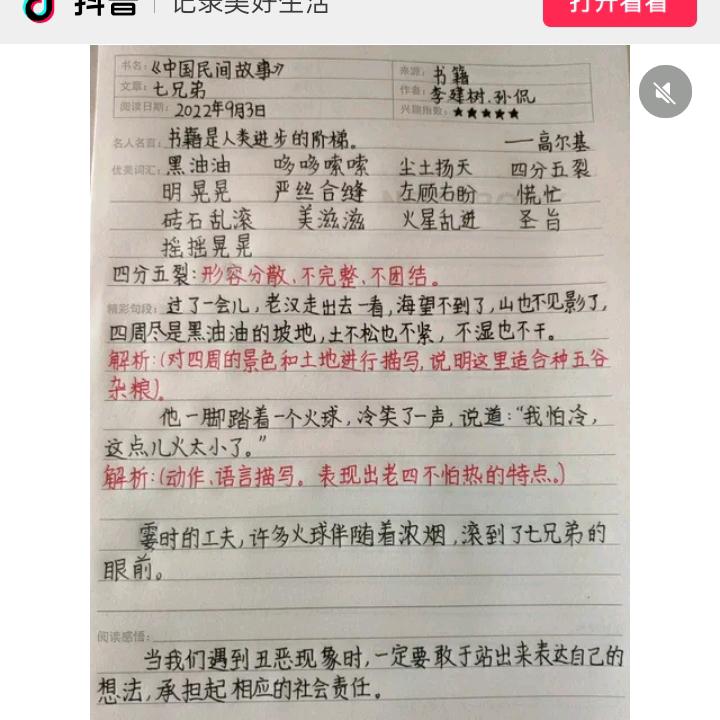 抖音 记录美好生活 打开看看
书名：《中国民间故事》 来源：书籍
文章：七兄弟 作者：李建树.孙侃
阅读日期：2022年9月3日 兴趣指数：★★★★★
名人名言：书籍是人类进步的阶梯。 ——高尔基
优美词汇：黑油油 哆哆嗦嗦 尘土扬天 四分五裂
明晃晃 严丝合缝 左顾右盼 慌忙
砖石乱滚 美滋滋 火星乱迸 圣旨
摇摇晃晃
四分五裂：形容分散、不完整、不团结。
精彩句段：过了一会儿，老汉走出去一看，海望不到了，山也不见影了，
四周尽是黑油油的坡地，土不松也不紧，不湿也不干。
解析：(对四周的景色和土地进行描写，说明这里适合种五谷
杂粮)。
他一脚踏着一个火球，冷笑了一声，说道：“我怕冷，
这点儿火太小了。”
解析：(动作、语言描写。表现出老四不怕热的特点。)
霎时的工夫，许多火球伴随着浓烟，滚到了七兄弟的
眼前。
阅读感悟：
当我们遇到丑恶现象时，一定要敢于站出来表达自己的
想法，承担起相应的社会责任。